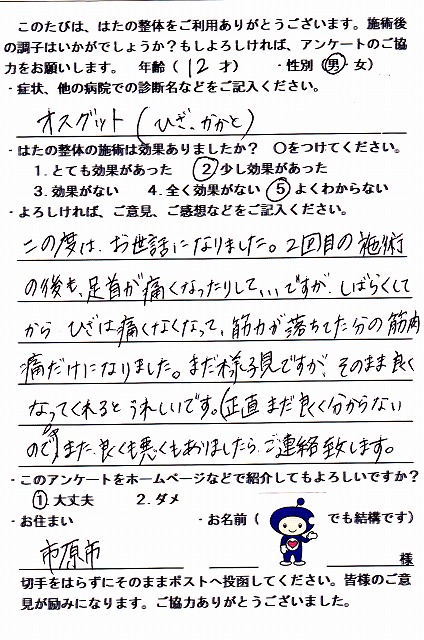 このたびは、はたの整体をご利用ありがとうございます。施術後
の調子はいかがでしょうか？もしよろしければ、アンケートのご協
力をお願いします。　年齢（１２才）　・性別（男・女）
・症状、他の病院での診断名などをご記入ください。
オスグット（ひざ、かかと）
・はたの整体の施術は効果ありましたか？　〇をつけてください。
１．とても効果があった　２少し効果があった
３．効果がない　４．全く効果がない　５よくわからない
・よろしければ、ご意見、ご感想などをご記入ください。
この度は、お世話になりました。２回目の施術
の後も、足首が痛くなったりして、、、ですが、しばらくして
から　ひざは痛くなくなって、筋力が落ちてた分の筋肉
痛だけになりました。まだ様子見ですが、そのまま良く
なってくれるとうれしいです。（正直まだ良く分からない
ので）また、良くも悪くもありましたら、ご連絡致します。
・このアンケートをホームページなどで紹介してもよろしいですか？
１．大丈夫　２．ダメ
・お住まい　・お名前（　でも結構です）
市原市　様
切手をはらずにそのままポストへ投函してください。皆様のご意
見が励みになります。ご協力ありがとうございました。